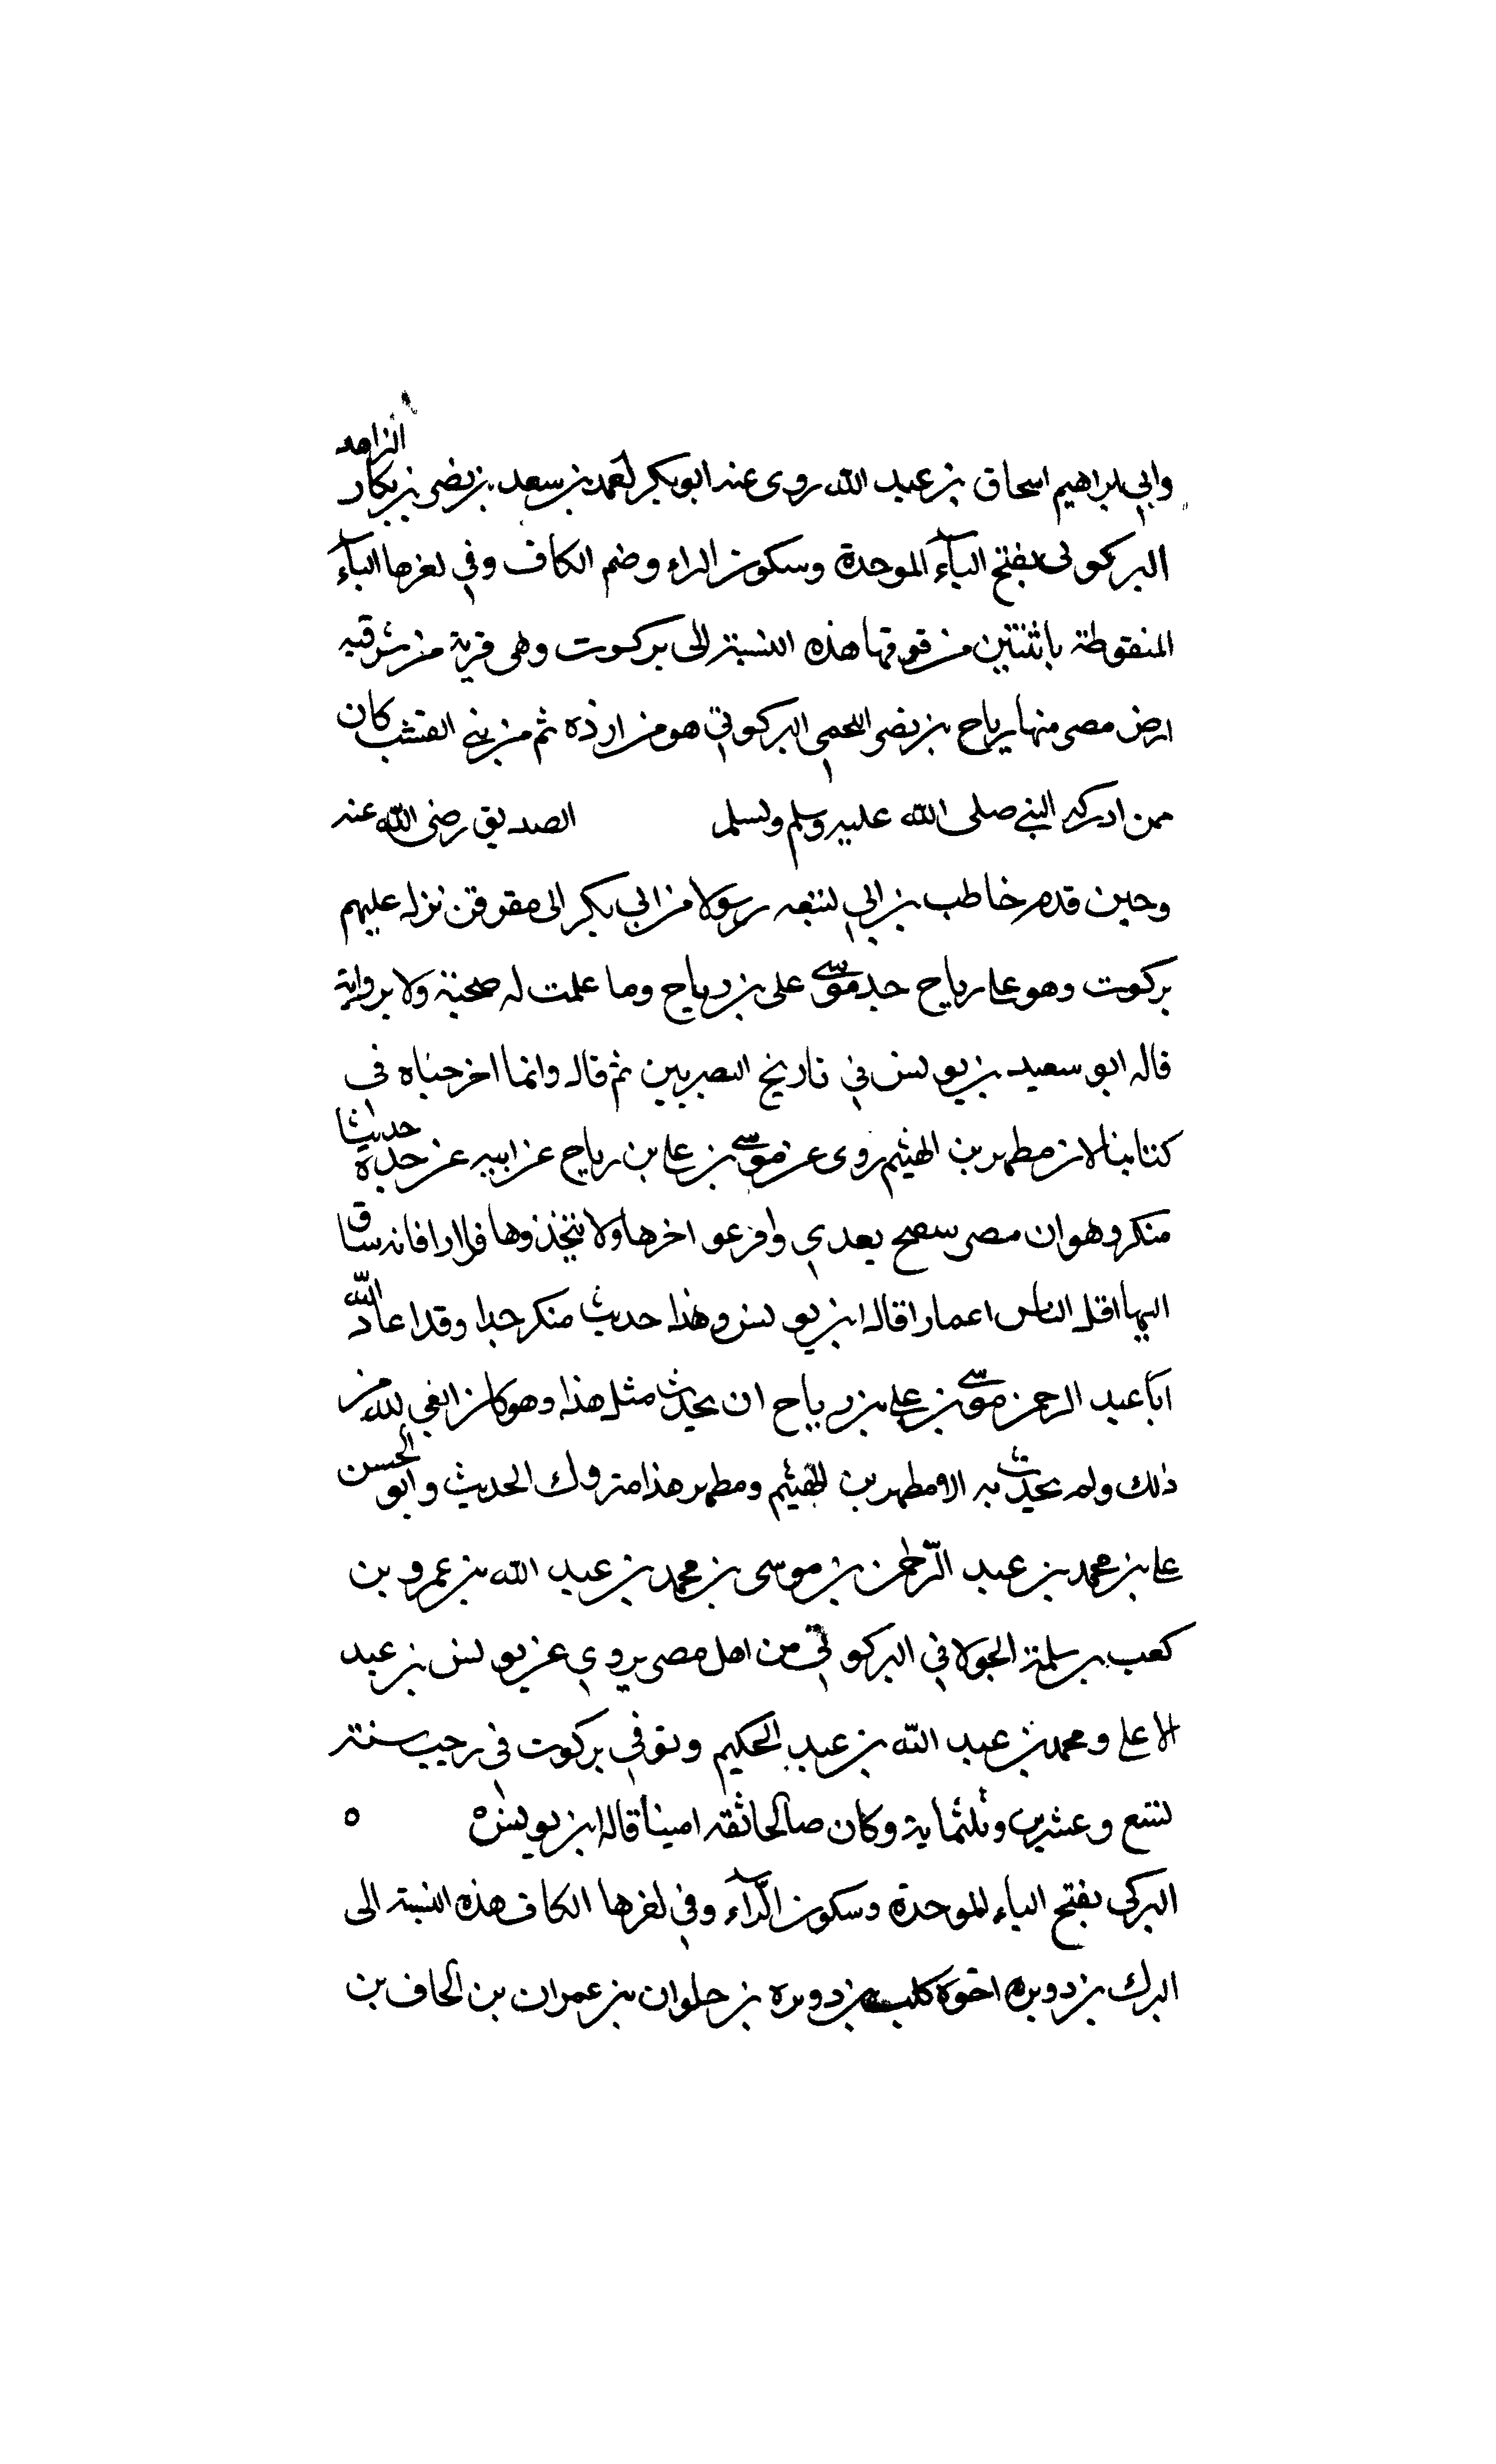 وابي ابراهيم اسحاق بن عبد الله روى عنه ابو بكر احمد بن سعد بن نصر بن بكار الزاهد
البركوتي بفتح الباء الموحدة وسكون الراء وضم الكاف وفي اخرها الباء
المنقوطة باثنتين من فوقها هذه النسبة الى بركوت وهى قرية من شرقيه
ارض مصر منها رياح بن نصر اللخمي البركوتي هو من ارذه ثم من بني القشب كان
ممن ادركه النبي صلى الله عليه وسلم ولسلم الصديق رضى الله عنه
وحين قدم خاطب بن ابي لنتعه رسولا من ابي بكر الى مقوقن نزله عليهم
بركوت وهو على رياح جد موسى على بن رياح وما علمت له صحبة ولا رواية
قاله ابو سعيد بن يونس في تاريخ المصريين ثم قال وانما اخرجناه في
كتابنا لان مطهر بن الهيثم روى عن موسى بن علي بن رياح عن ابيه عن جده حديثا
منكر وهو ان مصر سفتح بعدي وافزعو اخرها ولا تتخذوها قرارا فانه ساق
اليها اقل الناس اعمارا قاله ابن يونس وهذا حديث منكر جدا وقد اعاذ الله
ابا عبد الرحمن موسى بن علي بن رياح ان يحدث مثل هذا وهو كان اتقي لله من
ذلك ولم يحدث به الا مطهر بن الهيثم ومطهر هذا متروك الحديث وابو الحسن
علي بن محمد بن عبد الرحمن بن موسى بن محمد بن عبد الله بن عمرو بن
كعب بن سلمة الجولاني البركوتي من اهل مصر يروي عن يونس بن عبد
الاعلى ومحمد بن عبد الله بن عبد الحكيم وتوفي بركوت في رجب سنة
تسع وعشرين وثلثماية وكان صالحا ثقه امينا قاله ابن يونس ه ه
البركي بفتح الباء الموحدة وسكون الراء وفي اخرها الكاف هذه النسبة الى
البرك بن دوبره اخوة كلب بن دوبره بن حلوان بن عمران بن الحاف بن